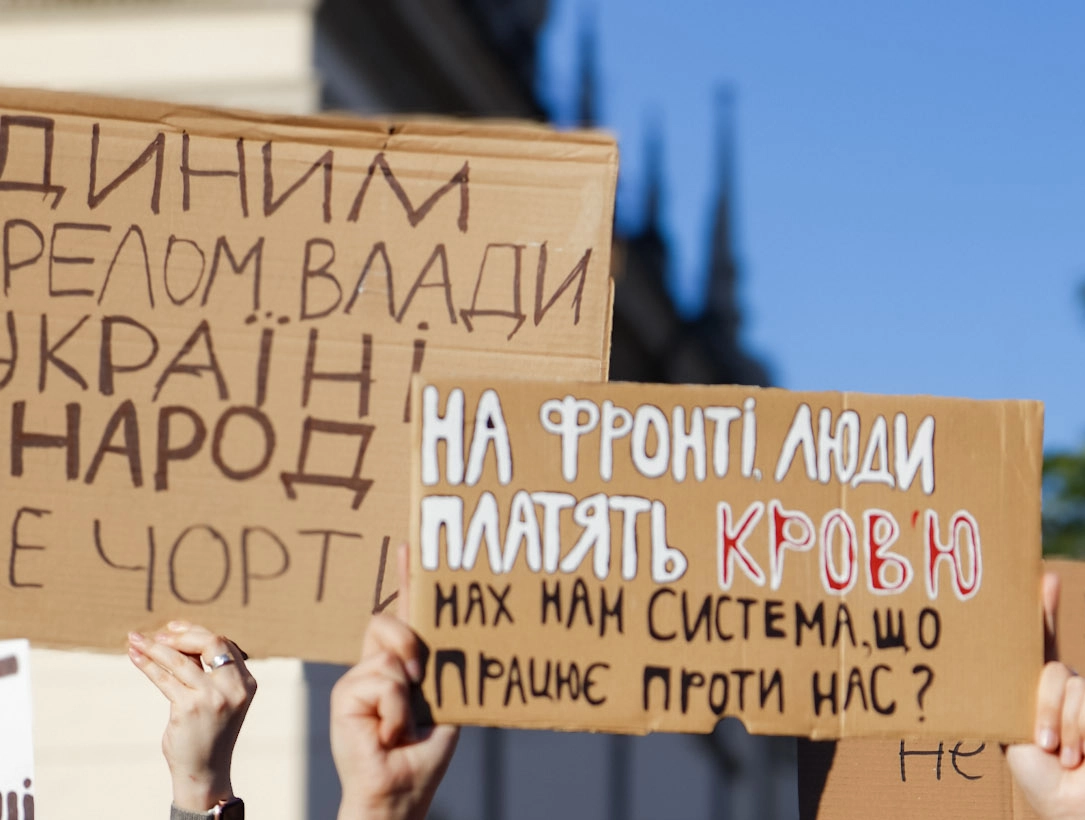 ДИНИМ
РЕЛОМ ВЛАДИ
УКРАЇНІ
НАРОД
Е ЧОРТИ
НА ФРОНТІ ЛЮДИ
ПЛАТЯТЬ КРОВ'Ю
НАХ НАМ СИСТЕМА, ЩО
ПРАЦЮЄ ПРОТИ НАС?
не